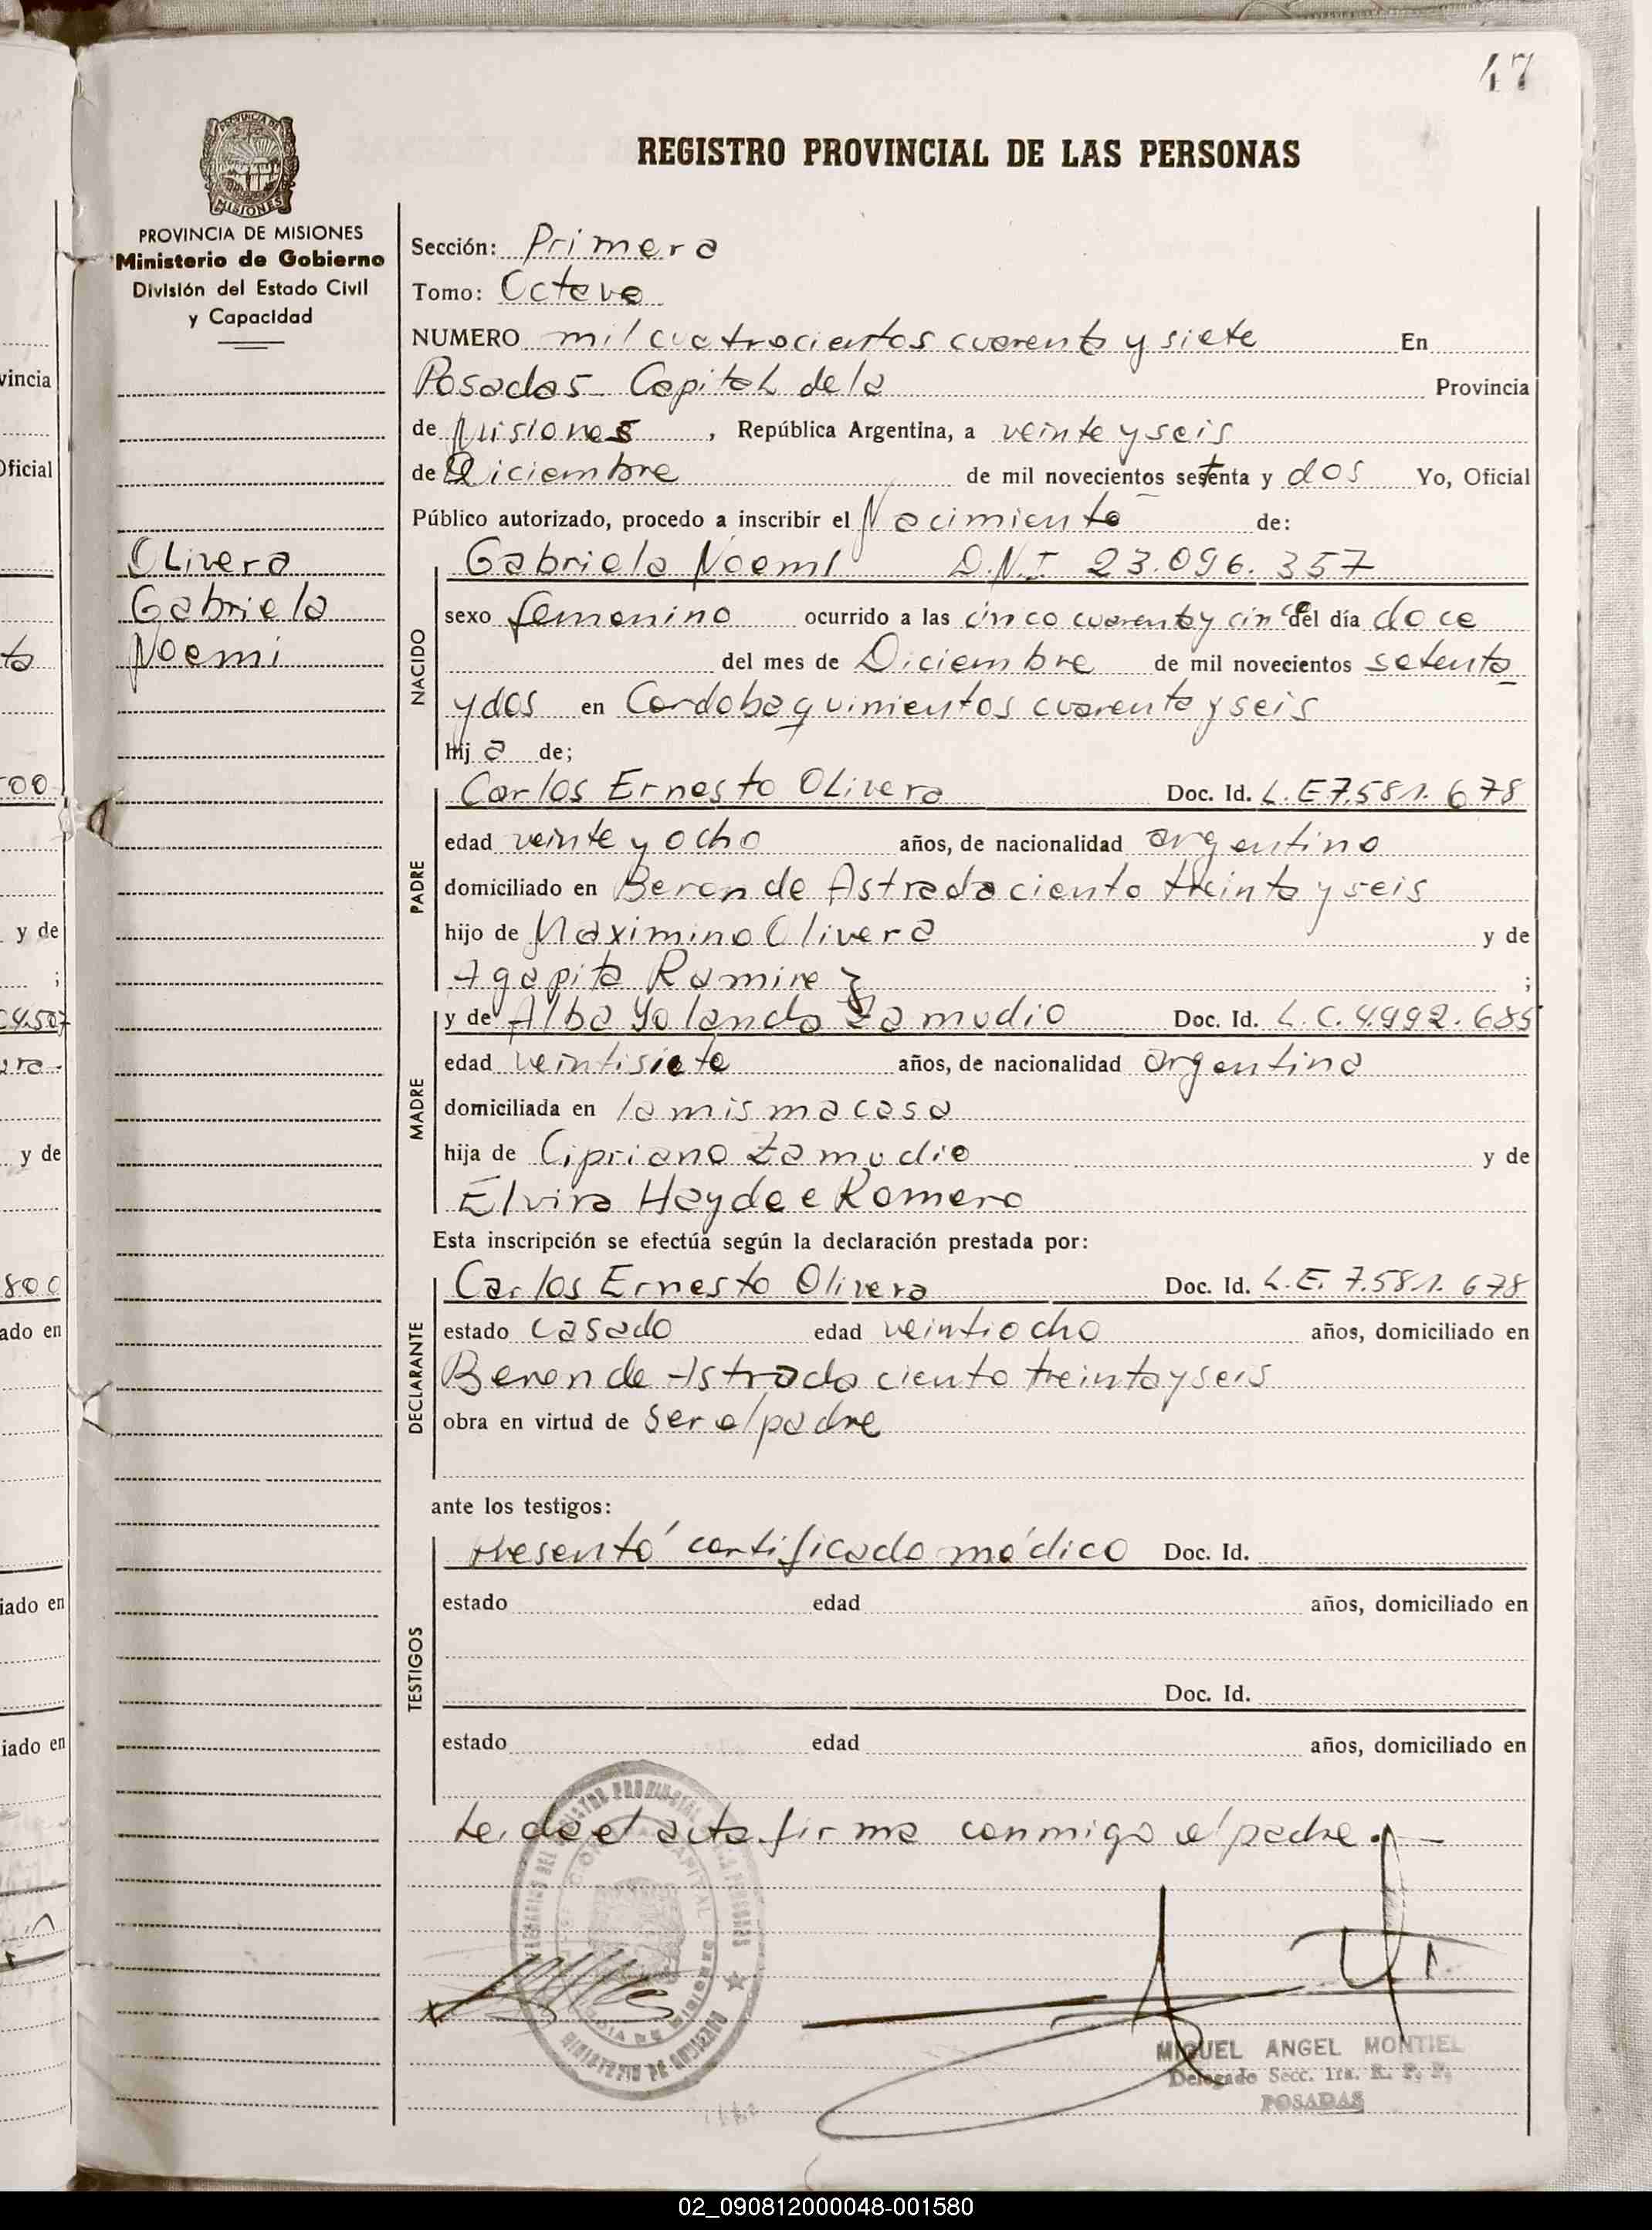 47
REGISTRO PROVINCIAL DE LAS PERSONAS
PROVINCIA DE MISIONES
PROVINCIA DE MISIONES
Ministerio de Gobierno
División del Estado Civil
y Capacidad
Olivera
Gabriela
Noemi
Sección: Primera
Tomo: Octavo
NUMERO mil cuatrocientos cuarenta y siete En
Posadas - Capital de la Provincia
de Misiones, República Argentina, a veinte y seis
de Diciembre de mil novecientos setenta y dos Yo, Oficial
Público autorizado, procedo a inscribir el Nacimiento de:
NACIDO
Gabriela Noemi D.N.I 23.096.357
sexo femenino ocurrido a las cinco cuarenta y cinco del día doce
del mes de Diciembre de mil novecientos setenta
y dos en Cordoba quinientos cuarenta y seis
hij a de;
PADRE
Carlos Ernesto Olivera Doc. Id. L.E 7.581.678
edad veinte y ocho años, de nacionalidad argentino
domiciliado en Beron de Astrada ciento treinta y seis
hijo de Maximino Olivera y de
Agapita Ramirez ;
MADRE
y de Alba Yolanda Zamudio Doc. Id. L.C. 4.992.685
edad veintisiete años, de nacionalidad argentina
domiciliada en la misma casa
hija de Cipriano Zamudio y de
Elvira Haydee Romero
Esta inscripción se efectúa según la declaración prestada por:
DECLARANTE
Carlos Ernesto Olivera Doc. Id. L.E. 7.581.678
estado casado edad veintiocho años, domiciliado en
Beron de Astrada ciento treinta y seis
obra en virtud de ser el padre
ante los testigos:
TESTIGOS
Presentó certificado médico Doc. Id.
estado edad años, domiciliado en
Doc. Id.
estado edad años, domiciliado en
Leida el acta firma conmigo el padre. —
MIGUEL ANGEL MONTIEL
Delegado Secc. 1ra. R. P. P.
POSADAS
vincia
Oficial
ta
500
y de
;
ura.
y de
800
ado en
iado en
iado en
02_090812000048-001580